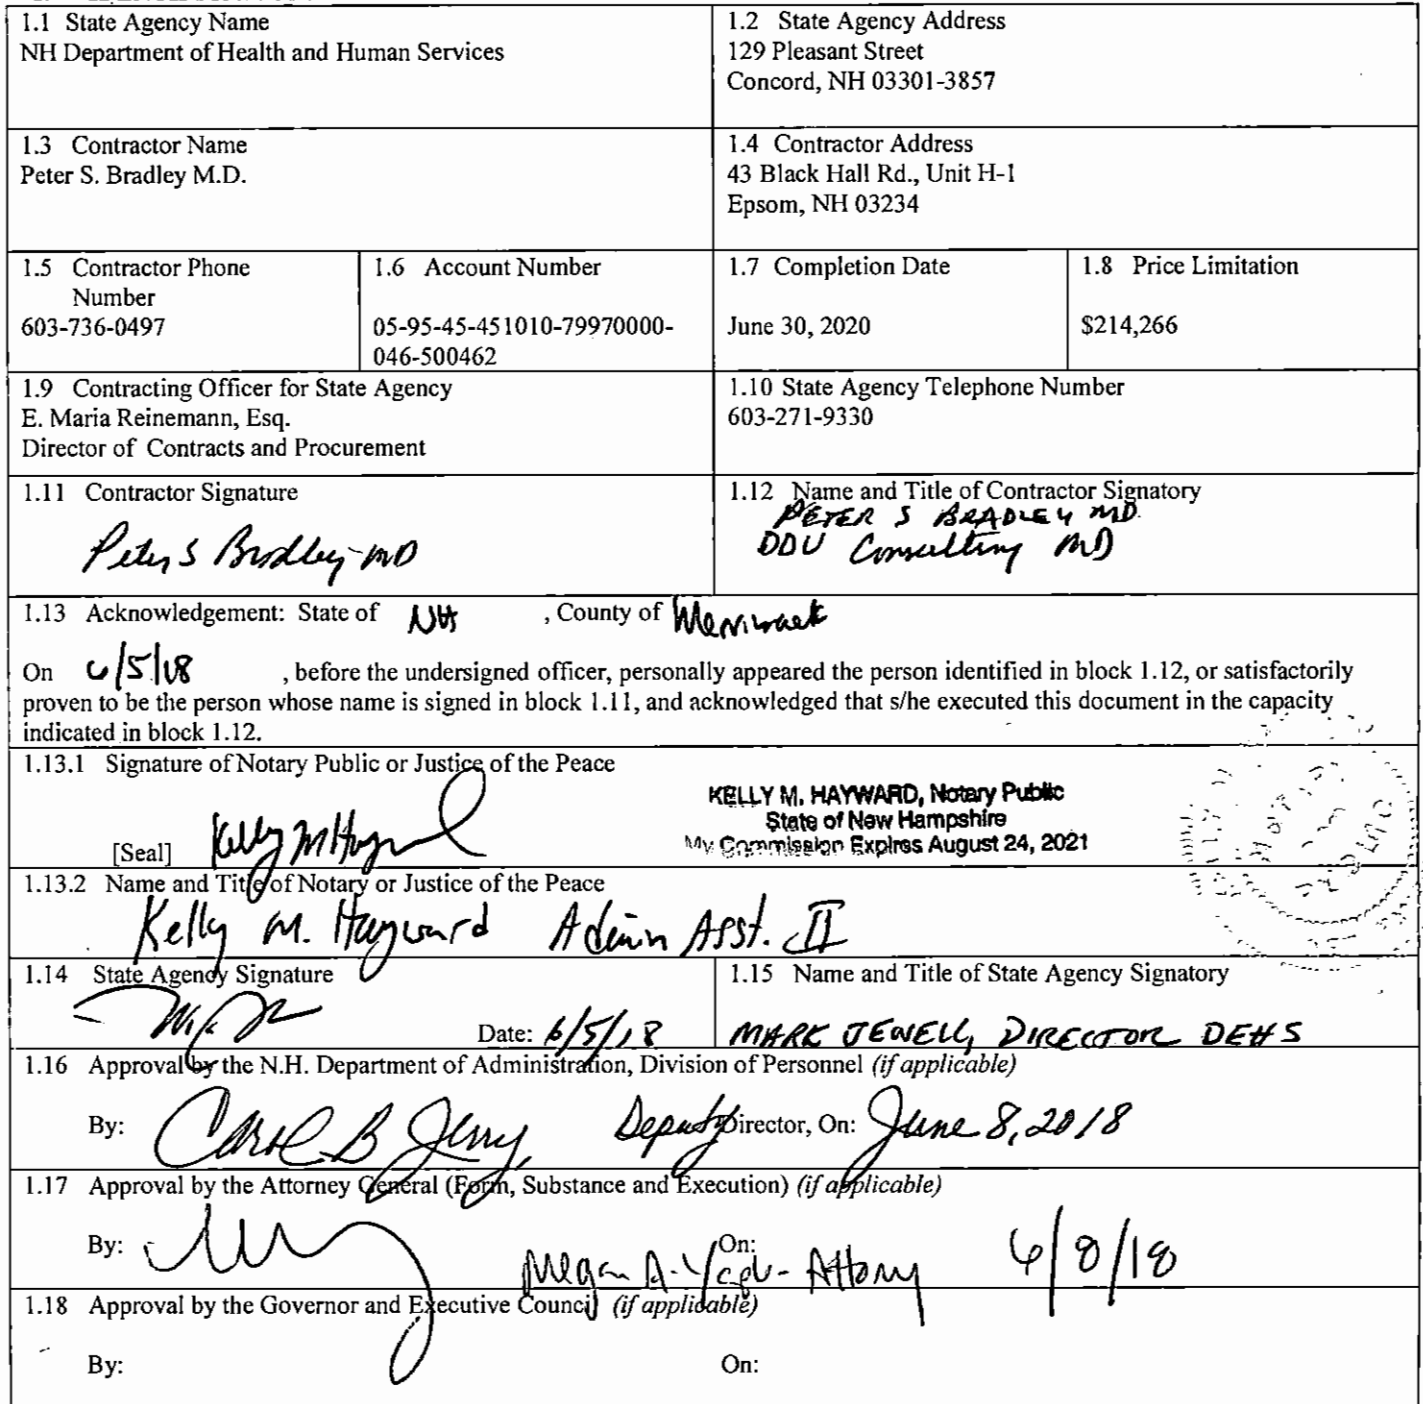 1.1 State Agency Name
NH Department of Health and Human Services
1.2 State Agency Address
129 Pleasant Street
Concord, NH 03301-3857
1.3 Contractor Name
Peter S. Bradley M.D.
1.4 Contractor Address
43 Black Hall Rd., Unit H-1
Epsom, NH 03234
1.5 Contractor Phone
Number
603-736-0497
1.6 Account Number
05-95-45-451010-79970000-
046-500462
1.7 Completion Date
June 30, 2020
1.8 Price Limitation
$214,266
1.9 Contracting Officer for State Agency
E. Maria Reinemann, Esq.
Director of Contracts and Procurement
1.10 State Agency Telephone Number
603-271-9330
1.11 Contractor Signature
Peter S Bradley MD
1.12 Name and Title of Contractor Signatory
PETER S BRADLEY MD
DDU Consulting MD
1.13 Acknowledgement: State of NH , County of Merrimack
On 6/5/18 , before the undersigned officer, personally appeared the person identified in block 1.12, or satisfactorily
proven to be the person whose name is signed in block 1.11, and acknowledged that s/he executed this document in the capacity
indicated in block 1.12.
1.13.1 Signature of Notary Public or Justice of the Peace
KELLY M. HAYWARD, Notary Public
State of New Hampshire
My Commission Expires August 24, 2021
[Seal] Kelly M Hayward
1.13.2 Name and Title of Notary or Justice of the Peace
Kelly M. Hayward Admin Asst. II
1.14 State Agency Signature
Date: 6/5/18
1.15 Name and Title of State Agency Signatory
MARK JEWELL, DIRECTOR DEHS
1.16 Approval by the N.H. Department of Administration, Division of Personnel (if applicable)
By: Carol B Jerry, Deputy Director, On: June 8, 2018
1.17 Approval by the Attorney General (Form, Substance and Execution) (if applicable)
By: On: Megan A. - Attorny 6/8/18
1.18 Approval by the Governor and Executive Council (if applicable)
By: On: